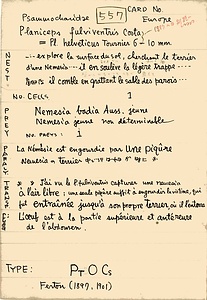 Psammocharidae 557 CARD No.
Europe
Planiceps fulviventris Costa
= Pl. helveticus Tournier 6-10 mm
NEST:
..explore la surface du sol, cherchant le terrier
d'une Nemesia...il en soulève le légère trappe...
il comble en grattant le sol les parois...
NO. CELLS 1
PREY
Nemesia badia Auss. jeune
Nemesia jeune non déterminable
NO. PREYS: 1
PARALY.
La Némésie est engourdie par une piqûre
Nemesia = Terrier
TRANSP.
J'ai vu le P. fulviventris capturer une nemesia
à l'air libre; une seule piqûre suffit à engourdir la victime, qui
fut entraînée jusqu'à son propre terrier où
L'oeuf est à la partie supérieure et antérieure
de l'abdomen.
TYPE: PTOCs
Ferton (1897, 1901)